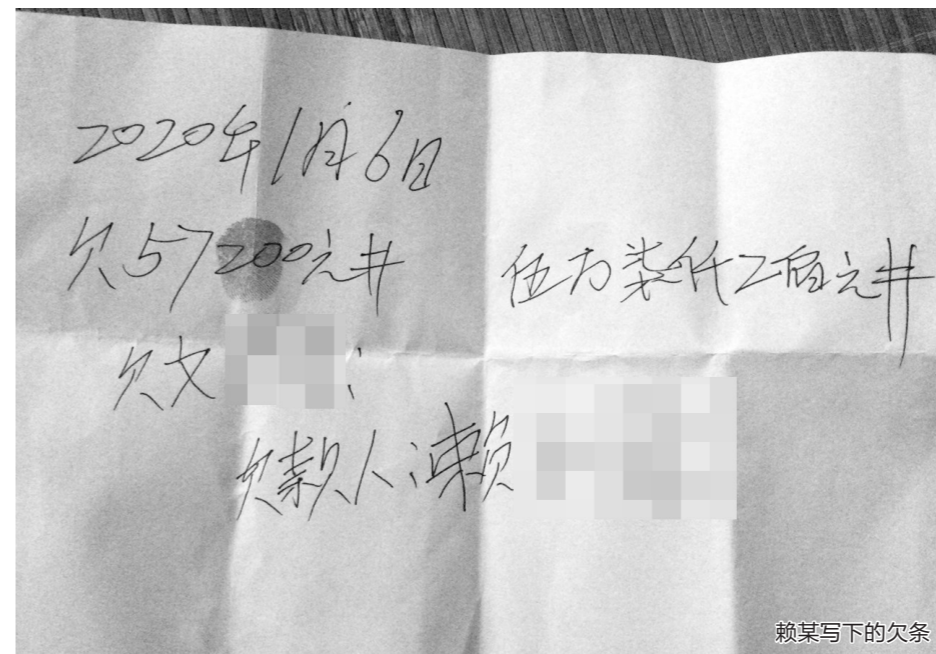 2020年1月6日
欠57200元井 伍万柒仟2佰元井
欠文
欠款人:赖
赖某写下的欠条